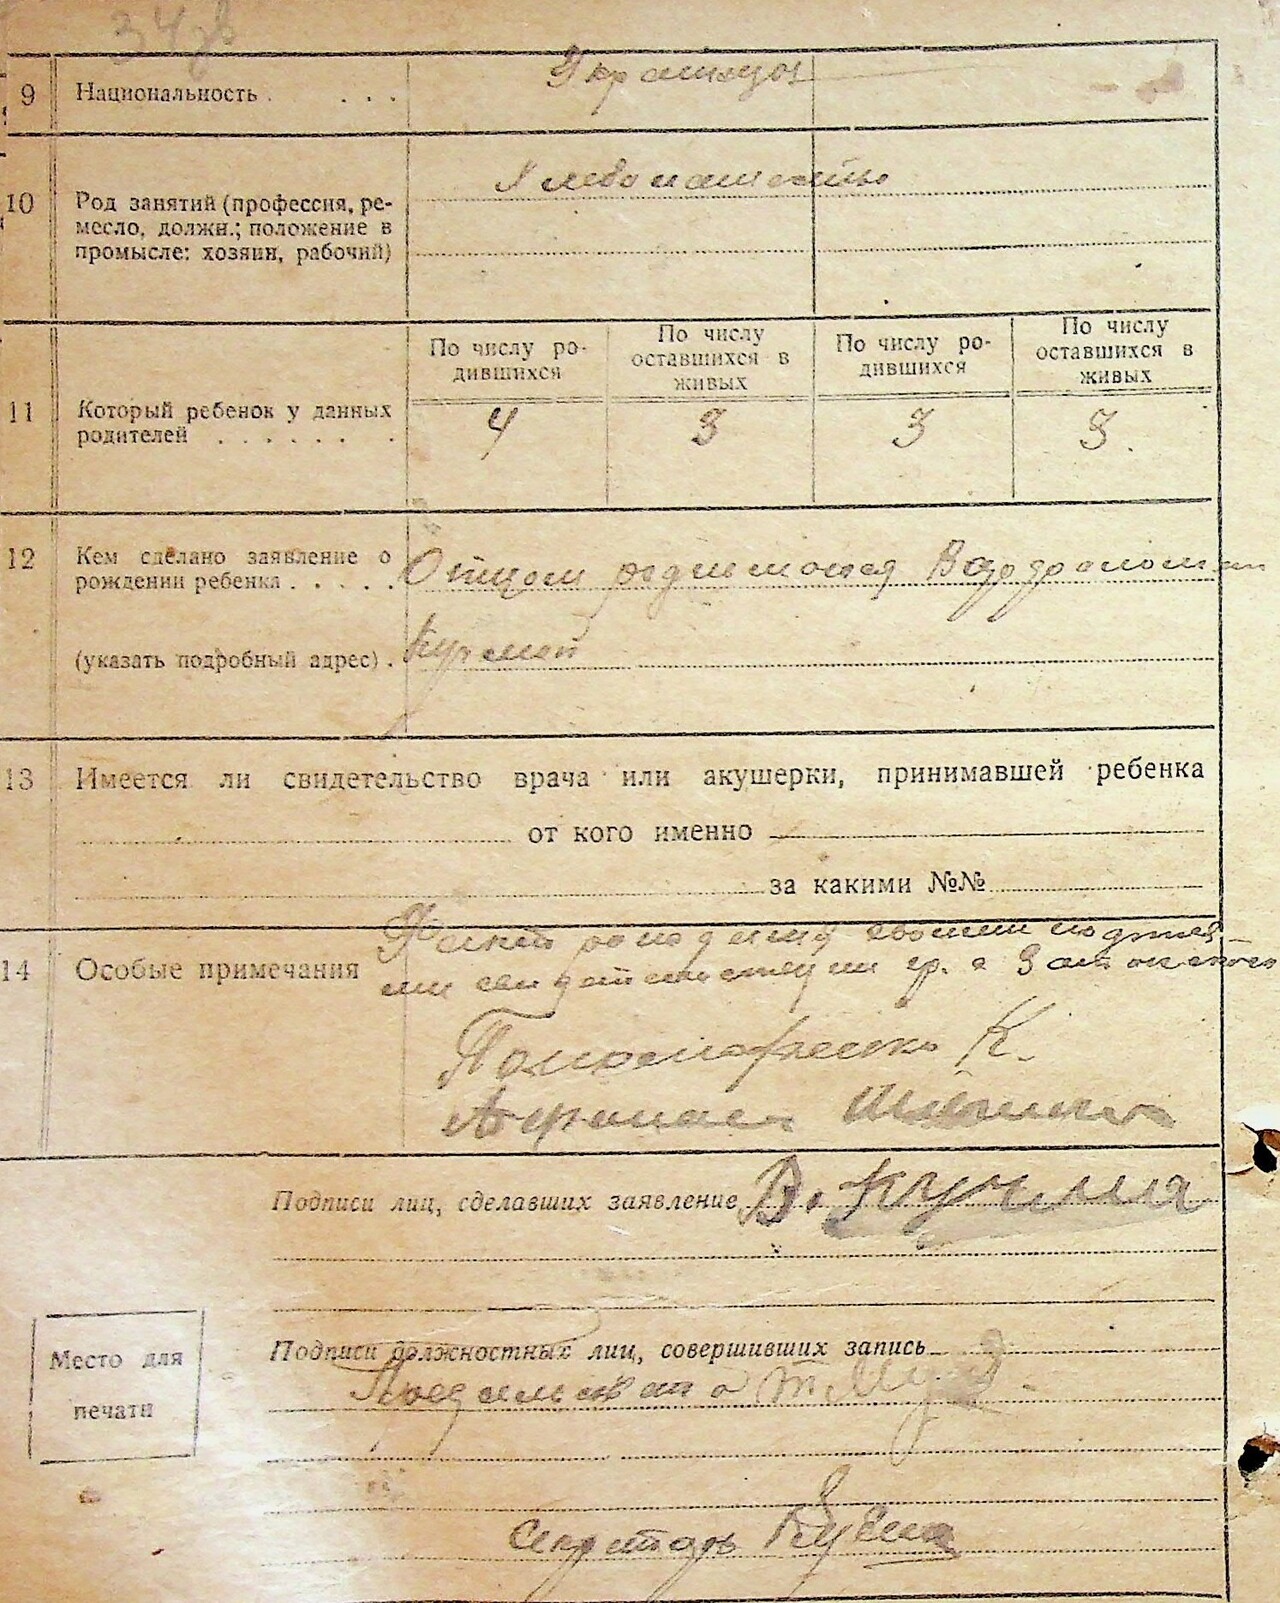 34 об
9 Национальность . . . . Украинцы
10 Род занятий (профессия, ре-
месло, должн.; положение в
промысле: хозяин, рабочий)
Хлебопашество
По числу ро-
дившихся
По числу
оставшихся в
живых
По числу ро-
дившихся
По числу
оставшихся в
живых
11 Который ребенок у данных
родителей . . . . . . .
4 3 3 3
12 Кем сделано заявление о
рождении ребенка . . . . . Отцом
(указать подробный адрес) .
13 Имеется ли свидетельство врача или акушерки, принимавшей ребенка
от кого именно
за какими №№
14 Особые примечания
Факт рождения своими подпися-
ми гр. с
Пономаренко К.
Подписи лиц, сделавших заявление В. Кучмия
Подписи должностных лиц, совершивших запись
Место для
печати
Секретарь